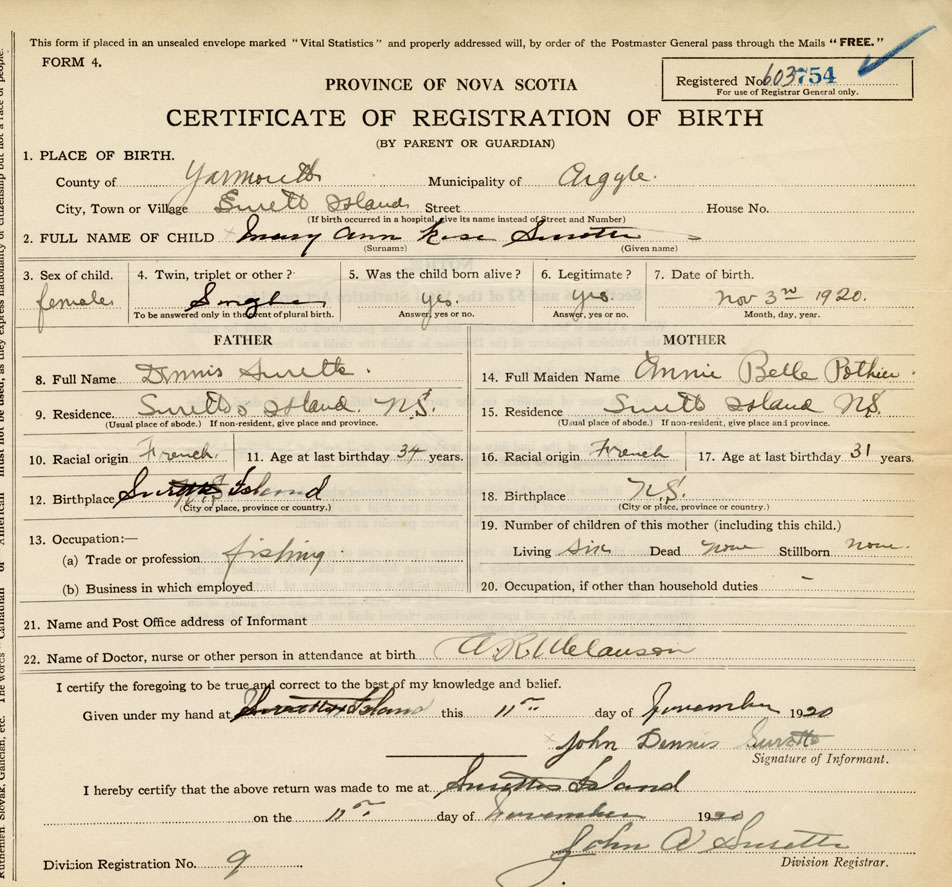 This form if placed in an unsealed envelope marked "Vital Statistics" and properly addressed will, by order of the Postmaster General pass through the Mails "FREE."
FORM 4.
Registered No. 603754
For use of Registrar General only.
PROVINCE OF NOVA SCOTIA
CERTIFICATE OF REGISTRATION OF BIRTH
(BY PARENT OR GUARDIAN)
1. PLACE OF BIRTH.
County of Yarmouth Municipality of Argyle.
City, Town or Village Surett Island Street House No.
(If birth occurred in a hospital, give its name instead of Street and Number)
2. FULL NAME OF CHILD Mary Ann Rose Surette
(Surname) (Given name)
3. Sex of child. 4. Twin, triplet or other? 5. Was the child born alive? 6. Legitimate? 7. Date of birth.
female Single yes. yes Nov 3rd 1920.
To be answered only in the event of plural birth. Answer, yes or no. Answer, yes or no. Month, day, year.
FATHER MOTHER
8. Full Name Dennis Surette. 14. Full Maiden Name Annie Belle Pothier.
9. Residence. Surette's Island. N.S. 15. Residence Surett Island N.S.
(Usual place of abode.) If non-resident, give place and province. (Usual place of abode.) If non-resident, give place and province.
10. Racial origin French. 11. Age at last birthday 34 years. 16. Racial origin French 17. Age at last birthday 31 years.
12. Birthplace Island 18. Birthplace N.S.
(City or place, province or country.) (City or place, province or country.)
13. Occupation:— 19. Number of children of this mother (including this child.)
(a) Trade or profession fishing Living six Dead none Stillborn none.
(b) Business in which employed 20. Occupation, if other than household duties -
21. Name and Post Office address of Informant
22. Name of Doctor, nurse or other person in attendance at birth A R Melanson
I certify the foregoing to be true and correct to the best of my knowledge and belief.
Given under my hand at Surettes Island this 11th day of November 1920
John Dennis Surette
Signature of Informant.
I hereby certify that the above return was made to me at Surettes Island
on the 11th day of November 1920
John A Surette
Division Registration No. 9 Division Registrar.